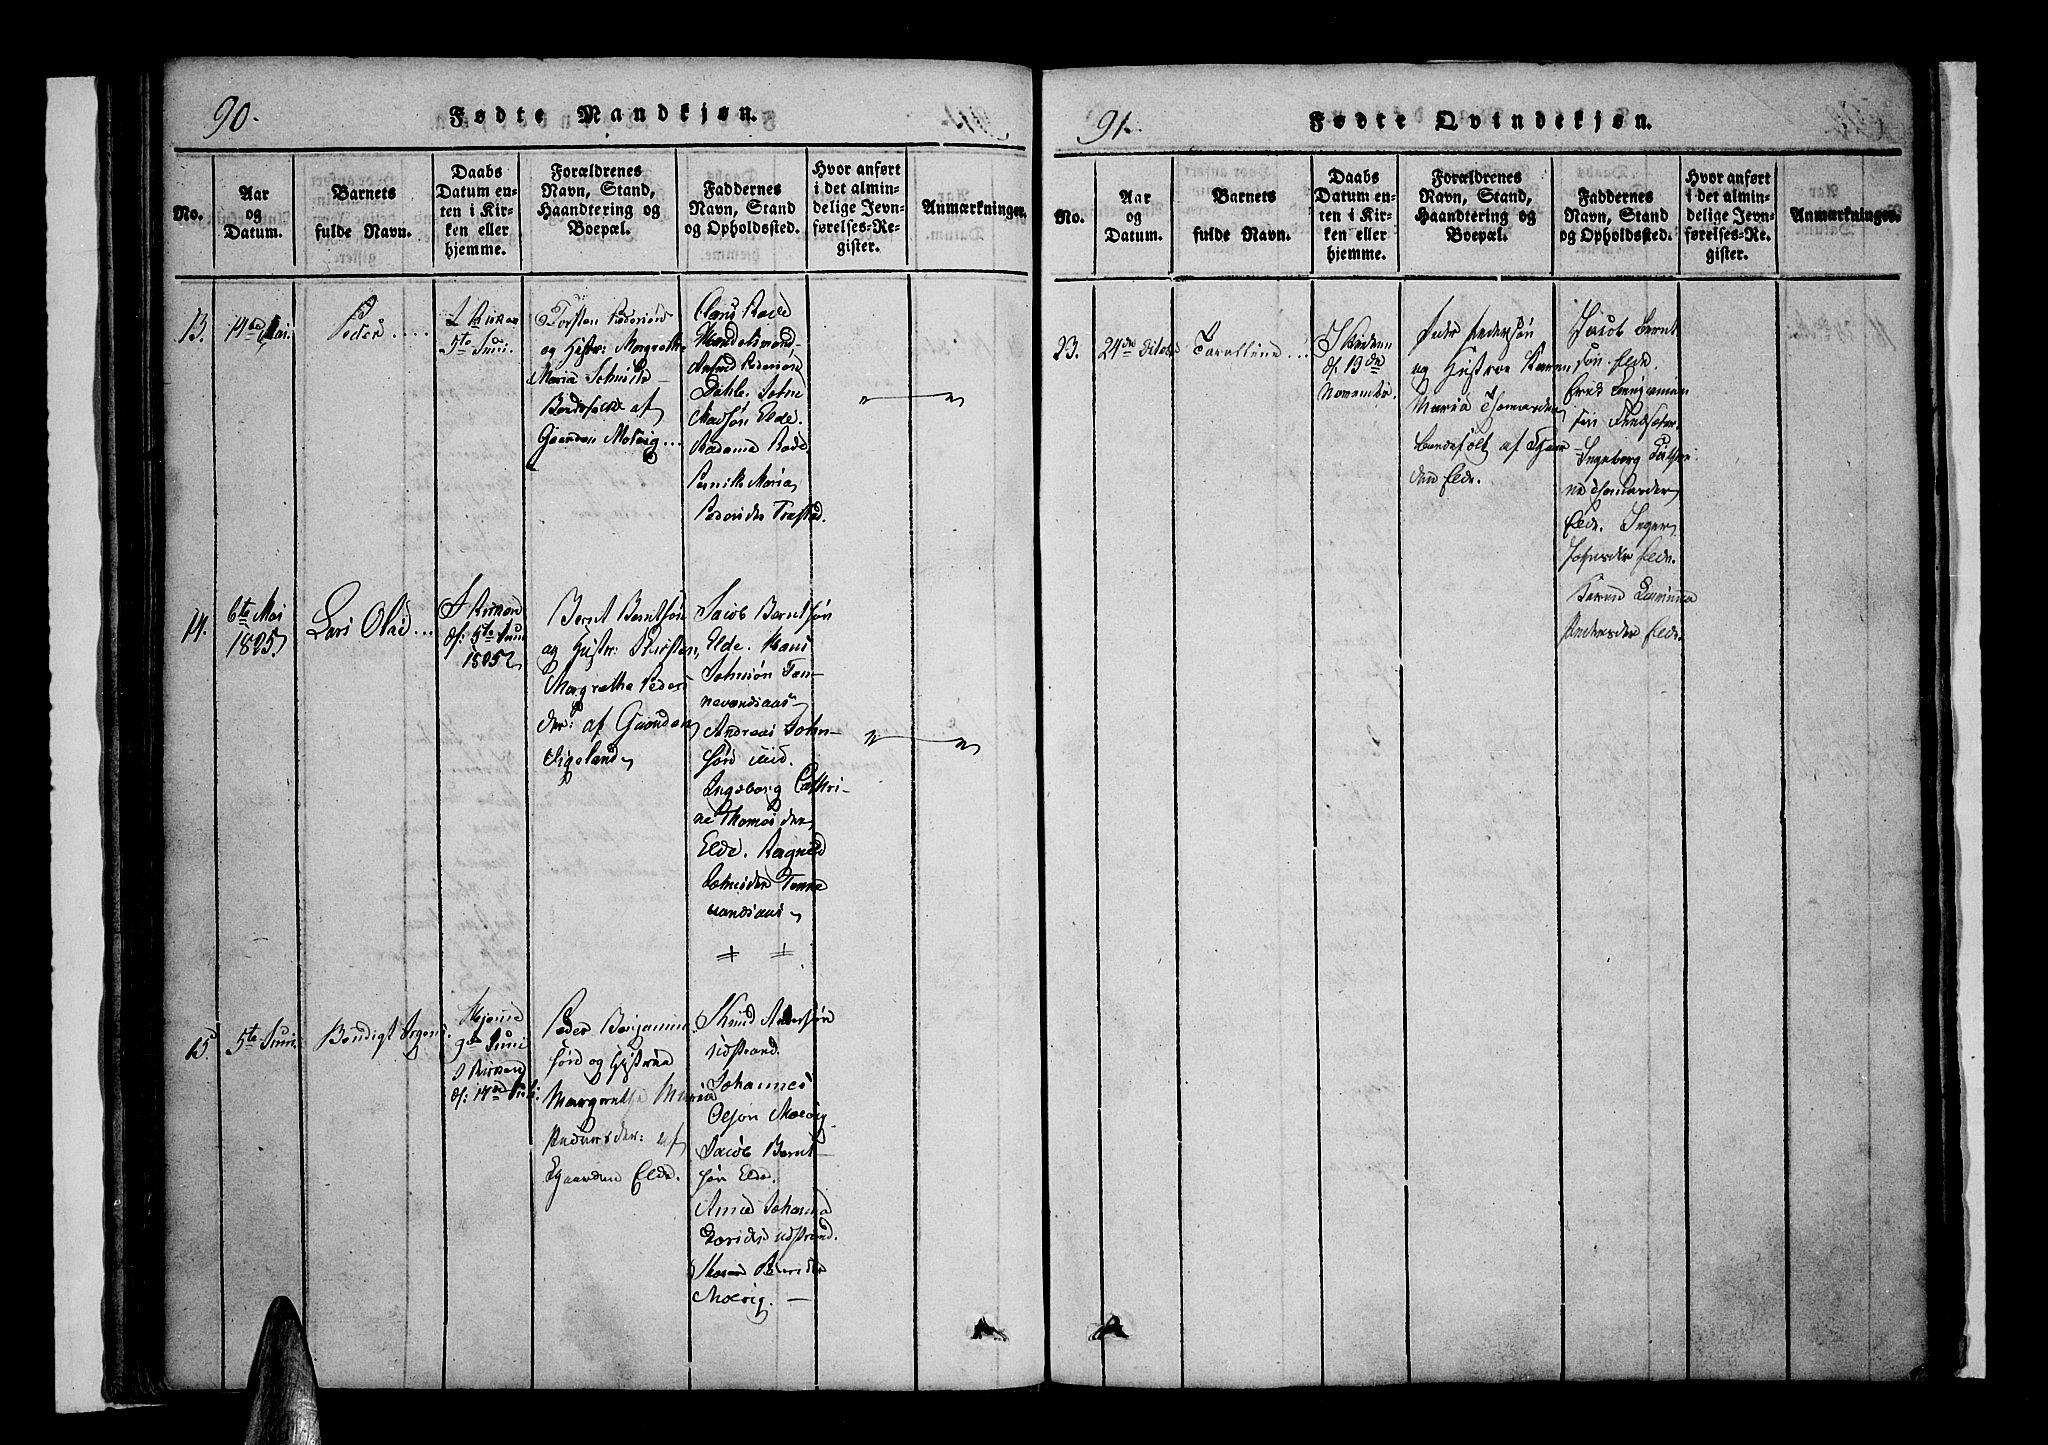 90.
Fødte Mandkjøn.
No.
Aar
og
Datum.
Barnets
fulde Navn.
Daabs
Datum en-
ten i Kir-
ken eller
hjemme.
Forældrenes
Navn, Stand,
Haandtering og
Boepæl.
Faddernes
Navn, Stand
og Opholdssted.
Hvor anført
i det almin-
delige Jevn-
førelses-Re-
gister.
Anmærkninger.
13.
14de Mai.
Peder....
I Kirken
5te Juni.
Torsten Pedersøn
og Hustr: Margrethe
Maria Schmidt
Bondefolk af
Gaarden Molvig...
Clans Rode
Handelsmand
Pedersøn
Dahle. Johne
Madsøn Elde.
Madame Rode
Pernille Maria
Pedersder Trastad.
14.
6te Mai
1825
Lars Olai...
I Kirken
d: 5te Juni
1825
Bernt Berntsøn
og Hustr: Kirsten
Margrethe Peders
der: af Gaarden
Sigeland
Jacob Berntsøn
Elde. Hans
Johnsøn Ten-
nevandsaas
Andreas John-
søn ibid.
Ingeborg Cathri-
ne Thomasder
Elde. Ragnild
Johnsder Tenne
vandsaas
15.
5te Juni.
Bendigt Argens.
Hjemme
9de Juni
I Kirken
d: 14de Juli.
Peder Benjamin
søn og Hustrue
Margrethe Maria
Pedersder: af
Gaarden Elde.
Knud Andersøn
udstrand.
Johannes
Olsøn Molvig
Jacob Bernt
søn Elde.
Anne Johanna
udstrand.
Maren
Molvig.
91.
Fødte Qvindekjøn.
No.
Aar
og
Datum.
Barnets
fulde Navn.
Daabs
Datum en-
ten i Kir-
ken eller
hjemme.
Forældrenes
Navn, Stand,
Haandtering og
Boepæl.
Faddernes
Navn, Stand
og Opholdssted.
Hvor anført
i det almin-
delige Jevn-
førelses-Re-
gister.
Anmærkninger.
23.
24de Octobr
...
I Kirken
d: 13de
Novembr.
Peder Pedersøn
og Hustrue Karen
Maria Thomasder
Bondefolk af Gaar
den Elde.
Jacob Bernt
søn Elde.
Benjamin
søn
Ingeborg Cathri
ne Thomasder
Elde. Inger
Johnsder Elde.
Karen
Andersder Elde.